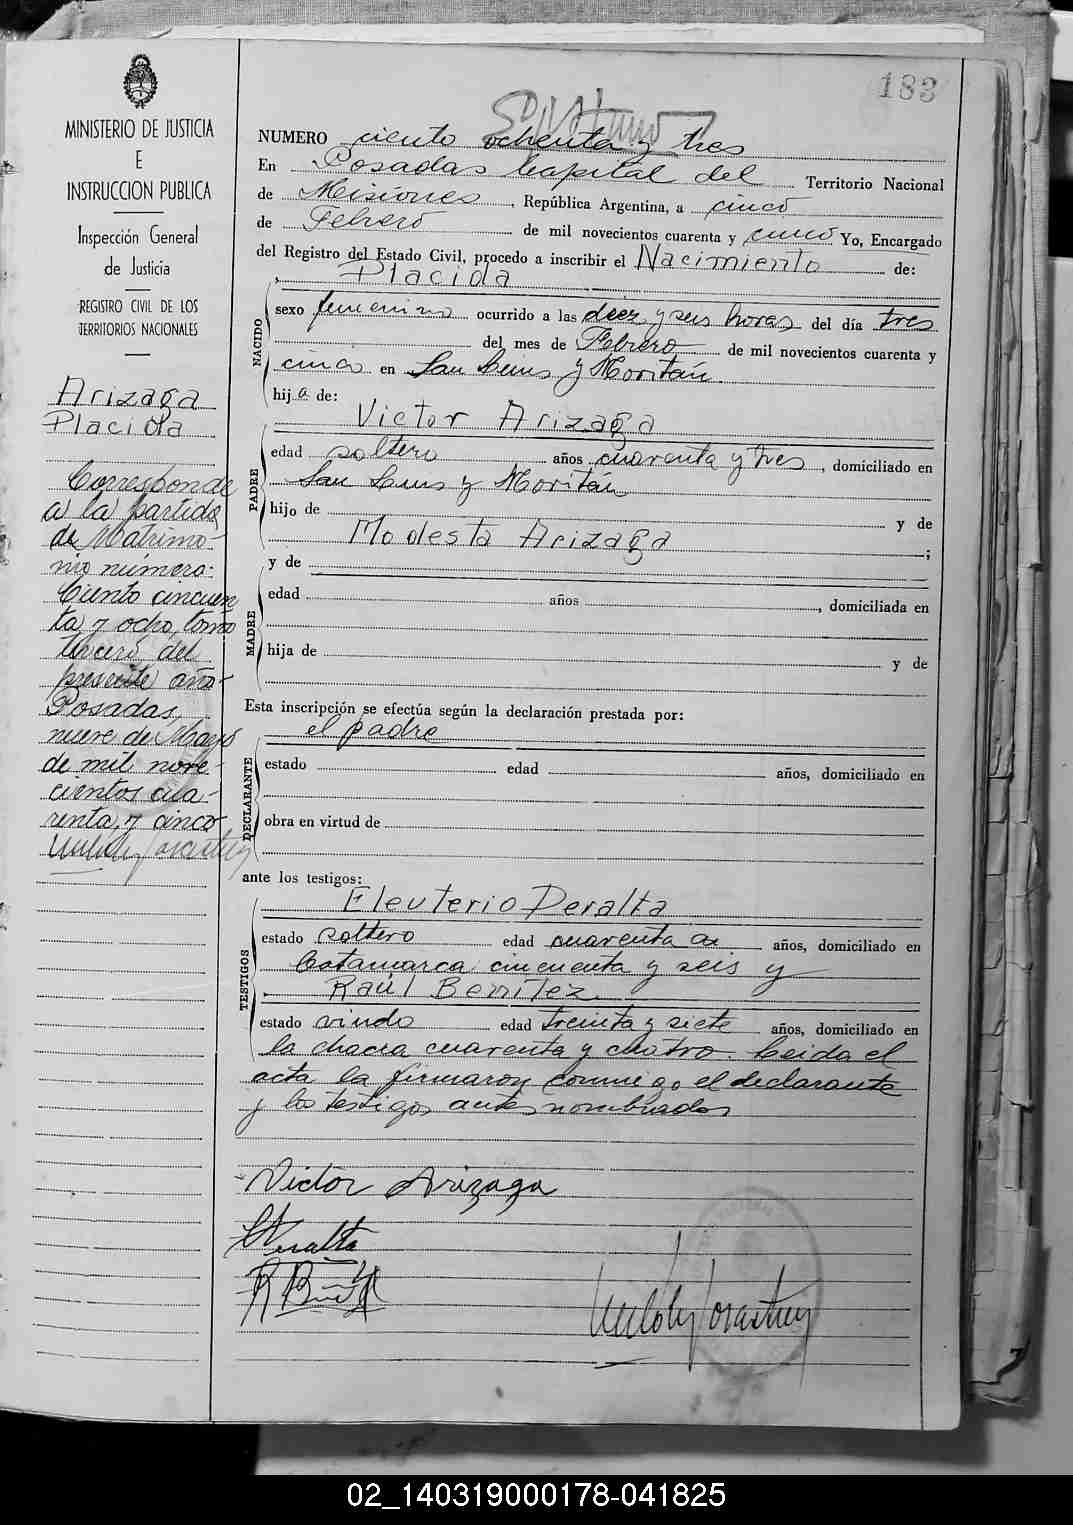 183
MINISTERIO DE JUSTICIA
E
INSTRUCCION PUBLICA
Inspección General
de Justicia
REGISTRO CIVIL DE LOS
TERRITORIOS NACIONALES
Arizaga
Placida
Corresponde
a la partida
de Matrimo-
nio número:
Ciento cincuen
ta y ocho, tomo
tercero del
presente año-
Posadas,
nueve de Mayo
de mil nove-
cientos cua-
renta, y cinco
NUMERO ciento ochenta y tres
En Posadas Capital del Territorio Nacional
de Misiones, República Argentina, a cinco
de Febrero de mil novecientos cuarenta y cinco Yo, Encargado
del Registro del Estado Civil, procedo a inscribir el Nacimiento de:
Placida
NACIDO
sexo femenino ocurrido a las diez y seis horas del día tres
del mes de Febrero de mil novecientos cuarenta y
cinco en San Luis y Moritán.
hija de:
Victor Arizaga
PADRE
edad soltero años cuarenta y tres, domiciliado en
San Luis y Moritán
hijo de y de
Modesta Arizaga;
y de
MADRE
edad años, domiciliada en
hija de y de
Esta inscripción se efectúa según la declaración prestada por:
el padre
DECLARANTE
estado edad años, domiciliado en
obra en virtud de
ante los testigos:
Eleuterio Peralta
TESTIGOS
estado soltero edad cuarenta años, domiciliado en
Catamarca cincuenta y seis y
Raúl Benitez
estado viudo edad treinta y siete años, domiciliado en
la chacra cuarenta y cuatro. Leida el
acta la firmaron conmigo, el declarante
y los testigos antes nombrados
Victor Arizaga
Peralta
02_140319000178-041825